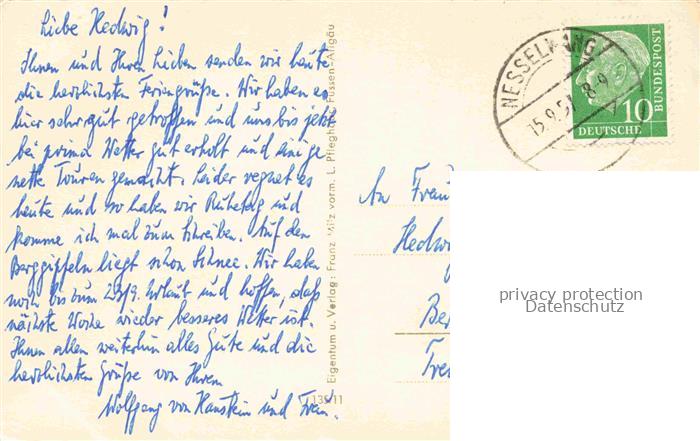 Liebe Hedwig!
Ihnen und Ihren Lieben senden wir heute
die herzlichsten Feriengrüße. Wir haben es
hier sehr gut getroffen und uns bis jetzt
bei prima Wetter gut erholt und einige
nette Touren gemacht. Leider regnet es
heute und so haben wir Ruhetag und
komme ich mal zum Schreiben. Auf den
Berggipfeln liegt schon Schnee. Wir haben
noch bis zum 23/9. Urlaub und hoffen, daß
nächste Woche wieder besseres Wetter ist.
Ihnen allen weiterhin alles Gute und die
herzlichsten Grüße von Ihrem
Wolfgang von Hanstein und Frau.
Eigentum u. Verlag: Franz Milz vorm. L. Pfleghar, Füssen-Allgäu
135/11
NESSELWANG
15.9.5
8-9
10
DEUTSCHE
BUNDESPOST
An Frau
Hedw
Be
privacy protection
Datenschutz